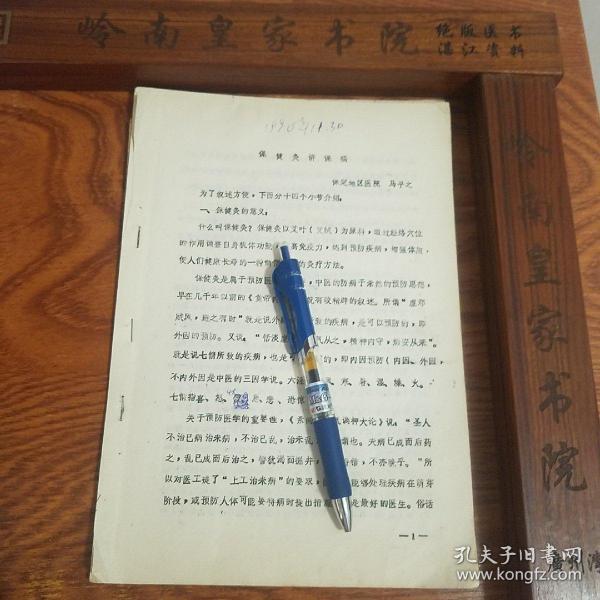 岭南皇家书院
绝版医书
湛江资料
保健灸讲课稿
保定地区医院 马
为了叙述方便，下面分十四个小节介绍：
一、保健灸的意义：
什么叫保健灸？保健灸以艾叶（艾绒）为原料，通过经络穴位
的作用调整自身机体功能 高免疫力，达到预防疾病，增强体质，
使人们健康长寿的一种 的灸疗方法。
保健灸是属于预防医 ，中医的防病于未然的预防思想，
早在几千年以前的《黄帝 就有较精辟的叙述。所谓“虚邪
贼风，避之有时”就是说外 致的疾病，是可以预防的，即
外因的预防。又说：“恬淡虚 气从之，精神内守，病安从来”。
就是说七情所致的疾病，也是 的，即内因预防（内因、外因、
不内外因是中医的三因学说。六淫 、寒、暑、湿、燥、火。
七情指喜、怒、 思、悲、恐
关于预防医学的重要性，《素 调神大论》说：“圣人
不治已病治未病，不治已乱，治未乱 谓也。夫病已成而后药
之，乱已成而后治之，譬犹渴而 铸 ，不亦晚乎。”所
以对医工提了“上工治未病”的要求， 能够处理疾病在萌芽
阶段，或预防人体可能要得病时提出措 是最好的医生。俗话
—1—
岭南皇家书院
孔夫子旧书网
www.kongfz.com